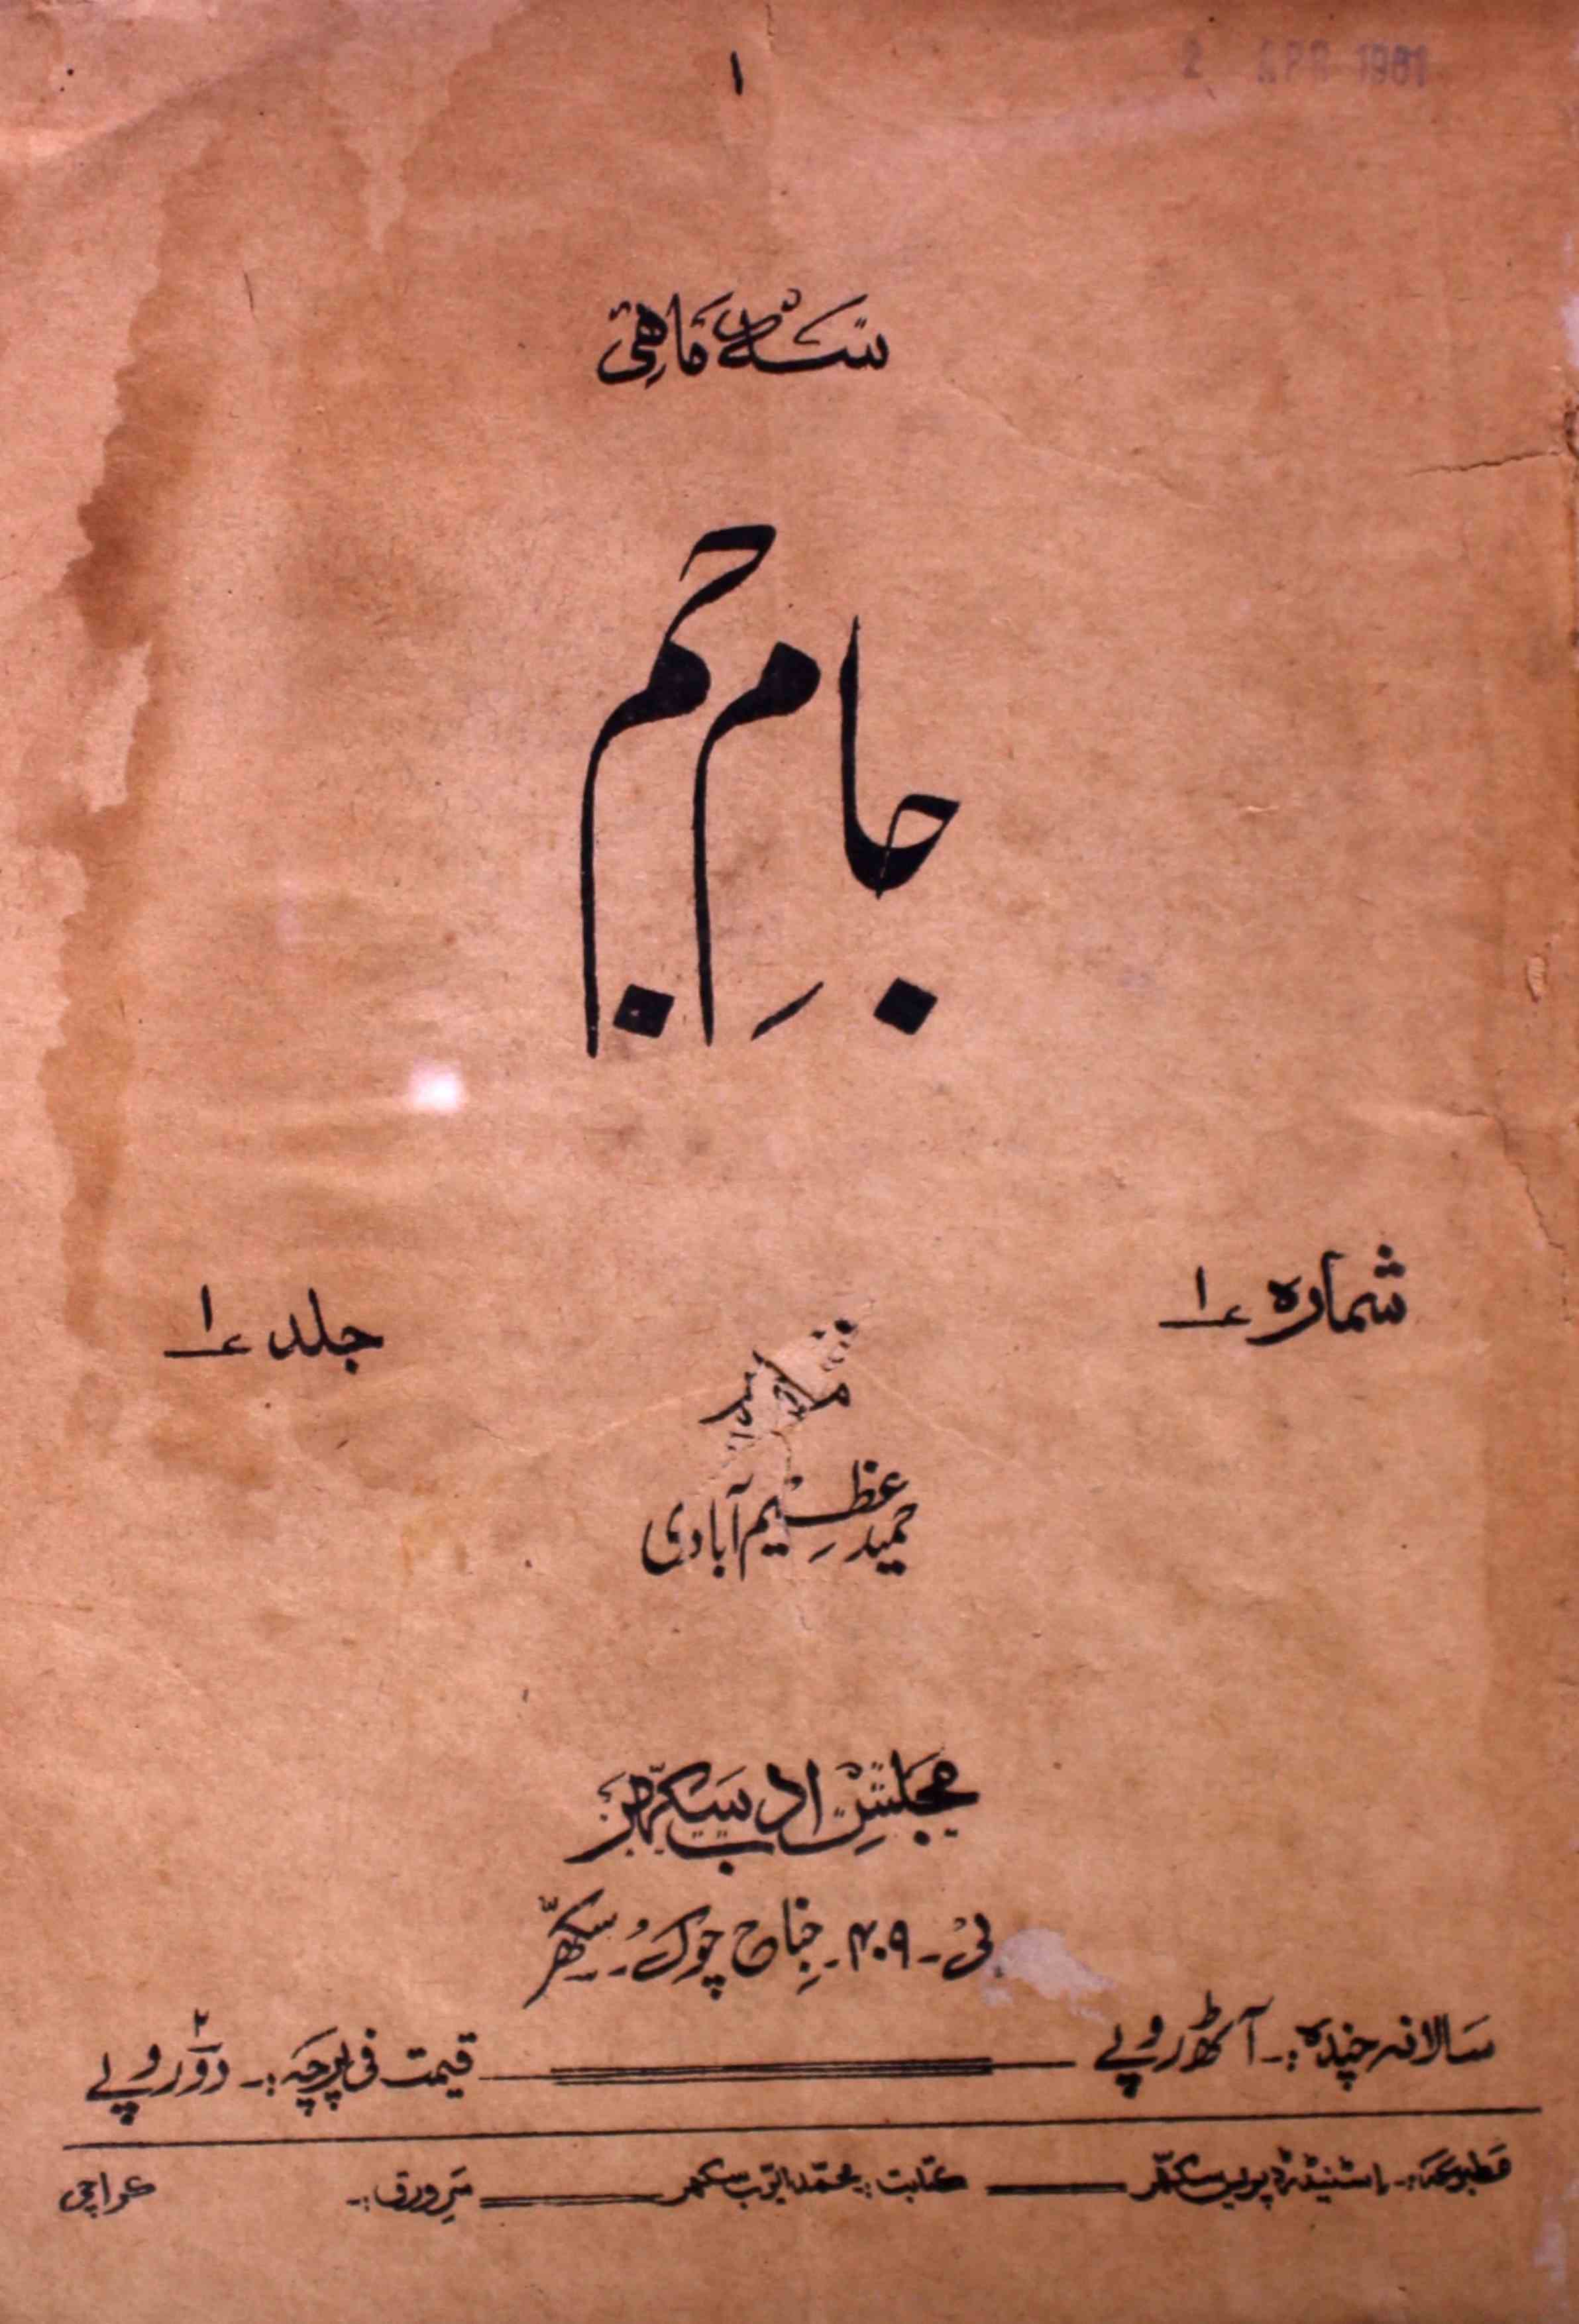 ۱
2 APR 1961
سہ ماہی
جامِ جم
شمارہ ۱
جلد ۱
حمید عظیم آبادی
مجلسِ ادب سکھر
بی۔ ۴۰۹۔ جناح چوک۔ سکھر
سالانہ چندہ :۔ آٹھ روپے
قیمت فی پرچہ :۔ دو روپے
مطبوعہ :۔ اسٹینڈرڈ پریس سکھر
کتابت :۔ محمد ایوب سکھر
سرورق :۔
کراچی